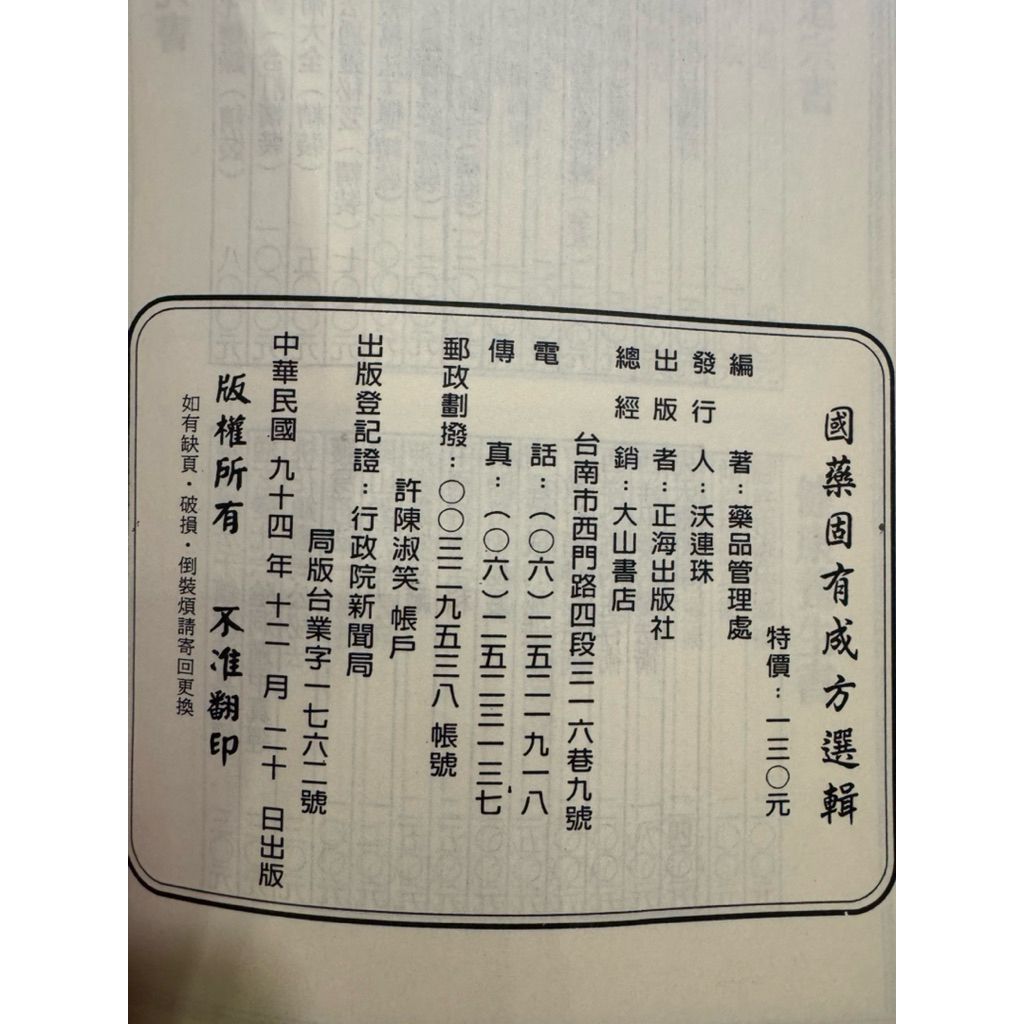 國藥固有成方選輯
特價：一三〇元
編著：藥品管理處
發行人：沃連珠
出版者：正海出版社
總經銷：大山書店
台南市西門路四段三一六巷九號
電話：（〇六）二五二一九一八
傳真：（〇六）二五二三一三七
郵政劃撥：〇〇三二九五三八 帳號
許陳淑笑 帳戶
出版登記證：行政院新聞局
局版台業字一七六二號
中華民國 九十四 年 十二 月 二十 日出版
版權所有 不准翻印
如有缺頁・破損・倒裝煩請寄回更換